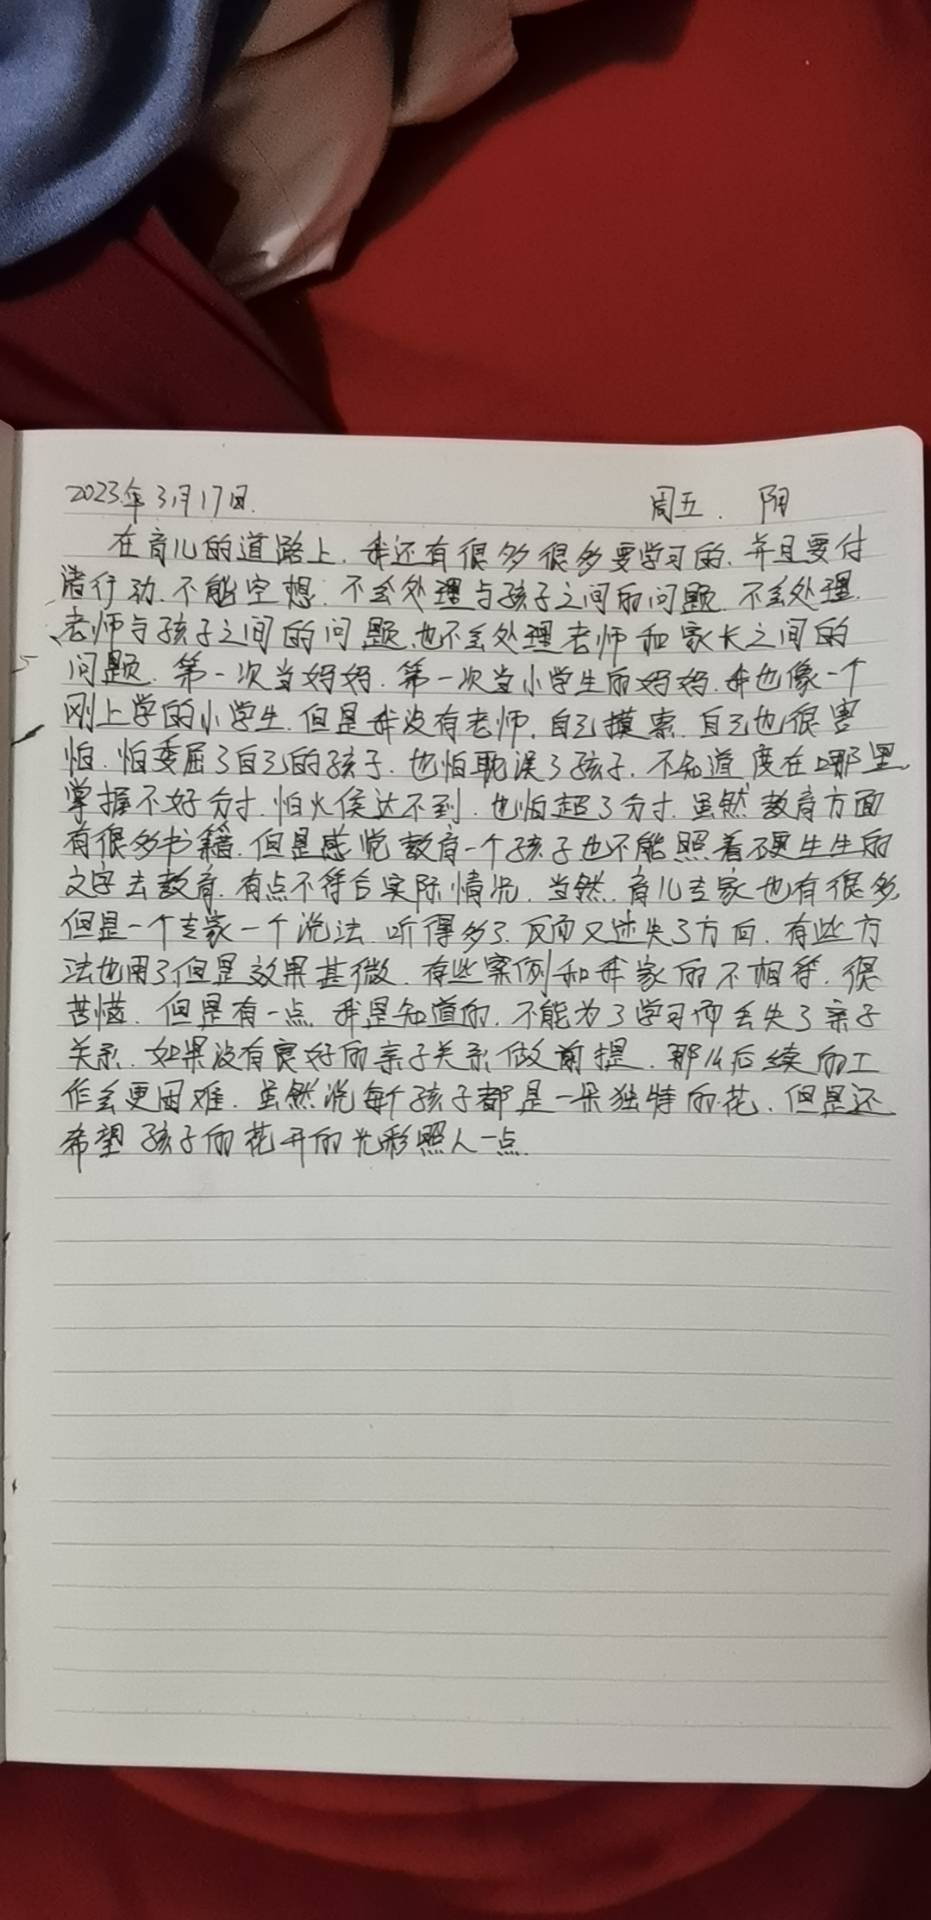 2023年3月17日. 周五. 阴
在育儿的道路上.我还有很多很多要学习的.并且要付
诸行动.不能空想.不会处理与孩子之间的问题.不会处理
老师与孩子之间的问题.也不会处理老师和家长之间的
问题.第一次当妈妈.第一次当小学生的妈妈.我也像一个
刚上学的小学生.但是我没有老师.自己摸索.自己也很害
怕.怕委屈了自己的孩子.也怕耽误了孩子.不知道度在哪里.
掌握不好分寸.怕火侯达不到.也怕超了分寸.虽然教育方面
有很多书籍.但是感觉教育一个孩子也不能照着硬生生的
文字去教育.有点不符合实际情况.当然.育儿专家也有很多
但是一个专家一个说法.听得多了.反而又迷失了方向.有些方
法也用了但是效果甚微.有些案例和我家的不相符.很
苦惱.但是有一点.我是知道的.不能为了学习而丢失了亲子
关系.如果没有良好的亲子关系做前提.那么后续的工
作会更困难.虽然说每个孩子都是一朵独特的花.但是还
希望孩子的花开的光彩照人一点.